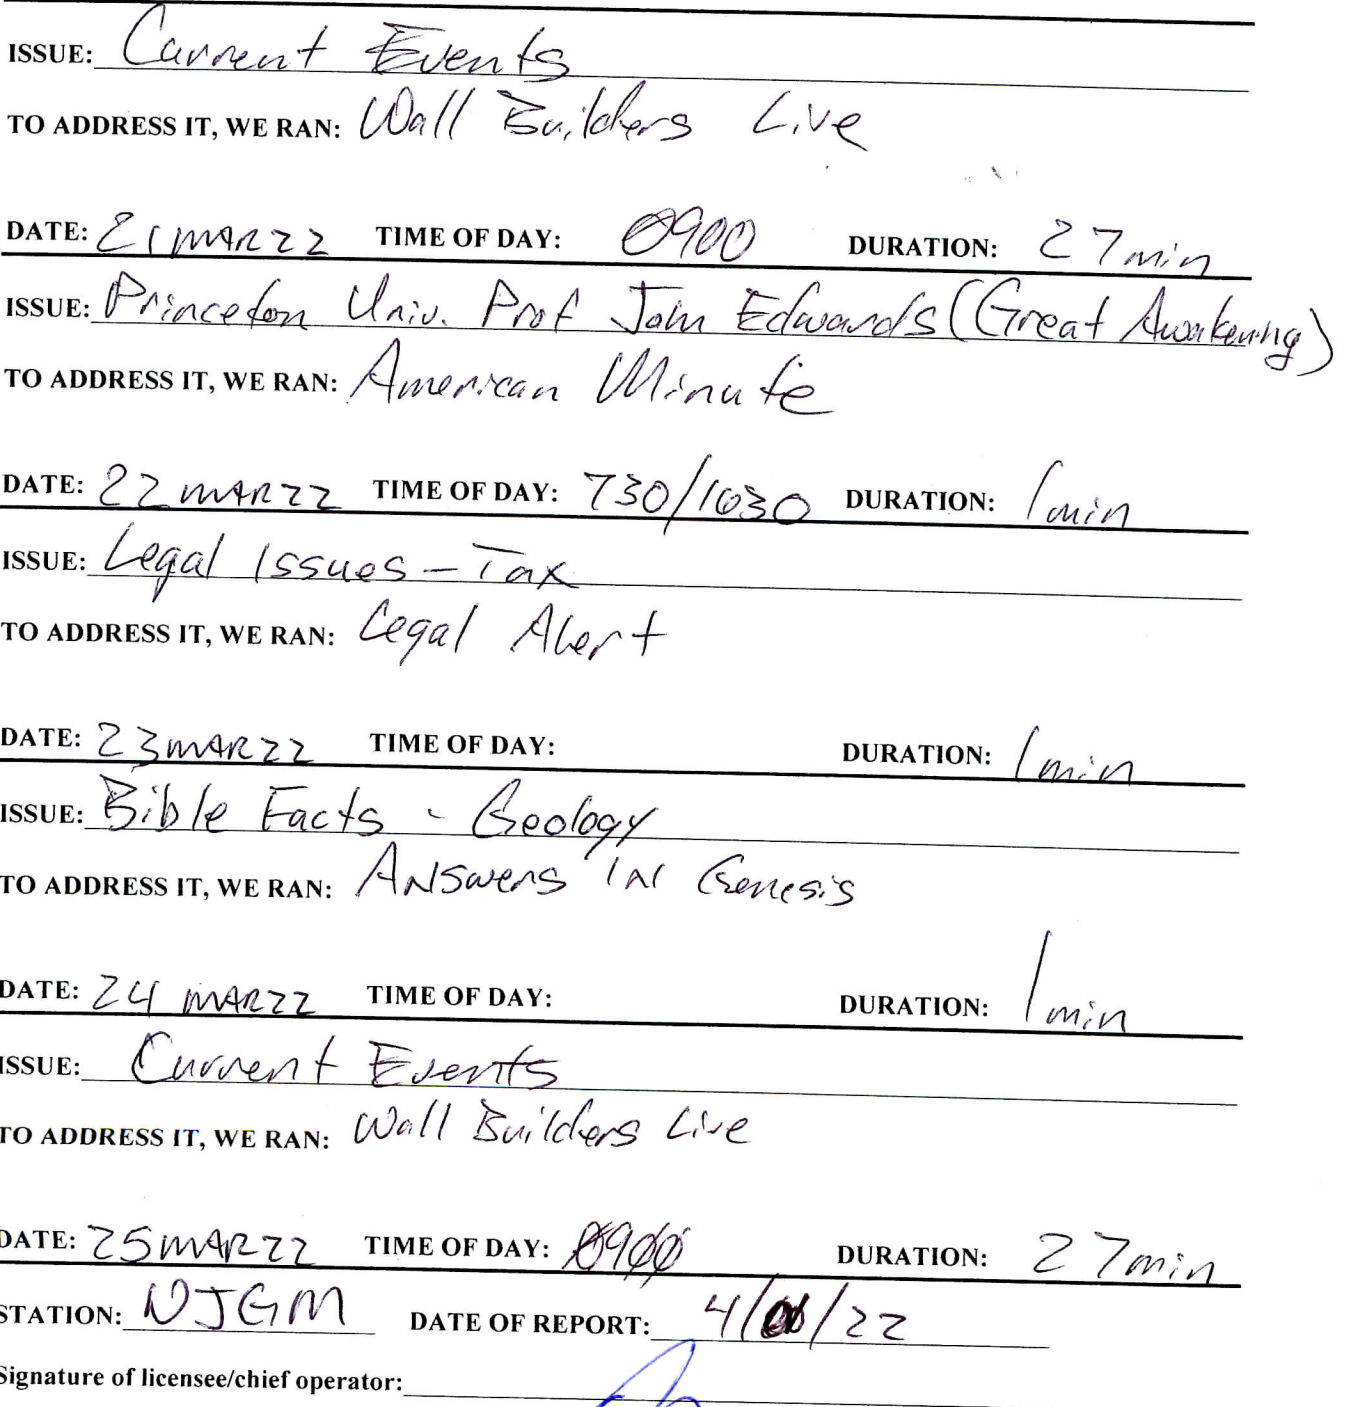 ISSUE: Current Events
TO ADDRESS IT, WE RAN: Wall Builders Live
DATE: 21 MAR 22 TIME OF DAY: 0900 DURATION: 27 min
ISSUE: Princeton Univ. Prof John Edwards (Great Awakening)
TO ADDRESS IT, WE RAN: American Minute
DATE: 22 MAR 22 TIME OF DAY: 730/1630 DURATION: 1 min
ISSUE: Legal Issues - Tax
TO ADDRESS IT, WE RAN: Legal Alert
DATE: 23 MAR 22 TIME OF DAY: DURATION: 1 min
ISSUE: Bible Facts - Geology
TO ADDRESS IT, WE RAN: Answers IN Genesis
DATE: 24 MAR 22 TIME OF DAY: DURATION: 1 min
ISSUE: Current Events
TO ADDRESS IT, WE RAN: Wall Builders Live
DATE: 25 MAR 22 TIME OF DAY: 0900 DURATION: 27 min
STATION: WJGM DATE OF REPORT: 4/ /22
Signature of licensee/chief operator: